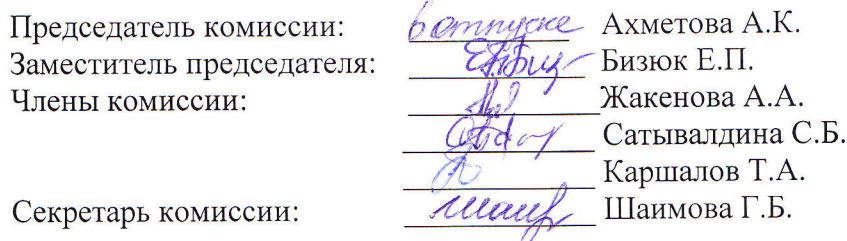 Председатель комиссии: в отпуске Ахметова А.К.
Заместитель председателя: Бизюк Е.П.
Члены комиссии: Жакенова А.А.
Сатывалдина С.Б.
Каршалов Т.А.
Секретарь комиссии: Шаимова Г.Б.